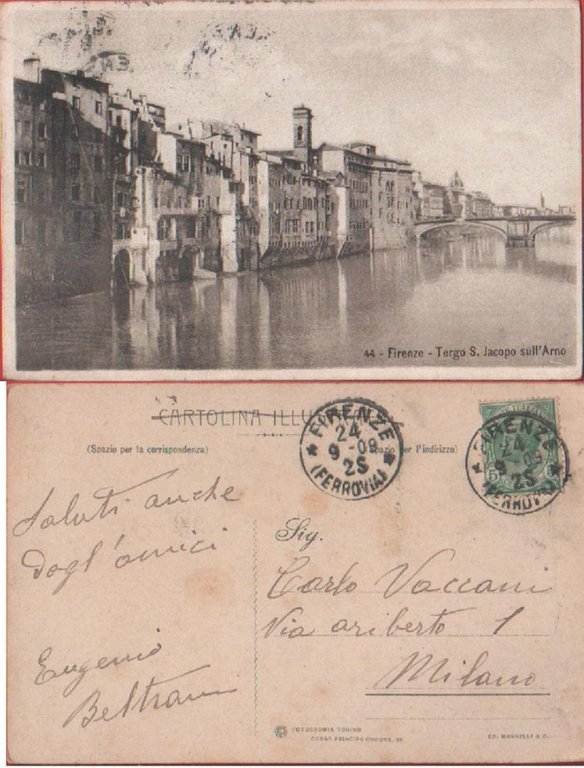 44 - Firenze - Tergo S. Jacopo sull'Arno
CARTOLINA ILLU
(Spazio per la corrispondenza)
spazio per l'indirizzo)
FIRENZE
24
9 - 09
2S
(FERROVIA)
FIRENZE
24
9 - 09
2S
(FERROVIA)
5
Saluti anche
dagl'amici
Eugenio
Beltrami
Sig.
Carlo Vaccani
Via ariberto 1
Milano
FOTOCROMIA TORINO
CORSO PRINCIPE ODDONE,
ED. MANNELLI & C.